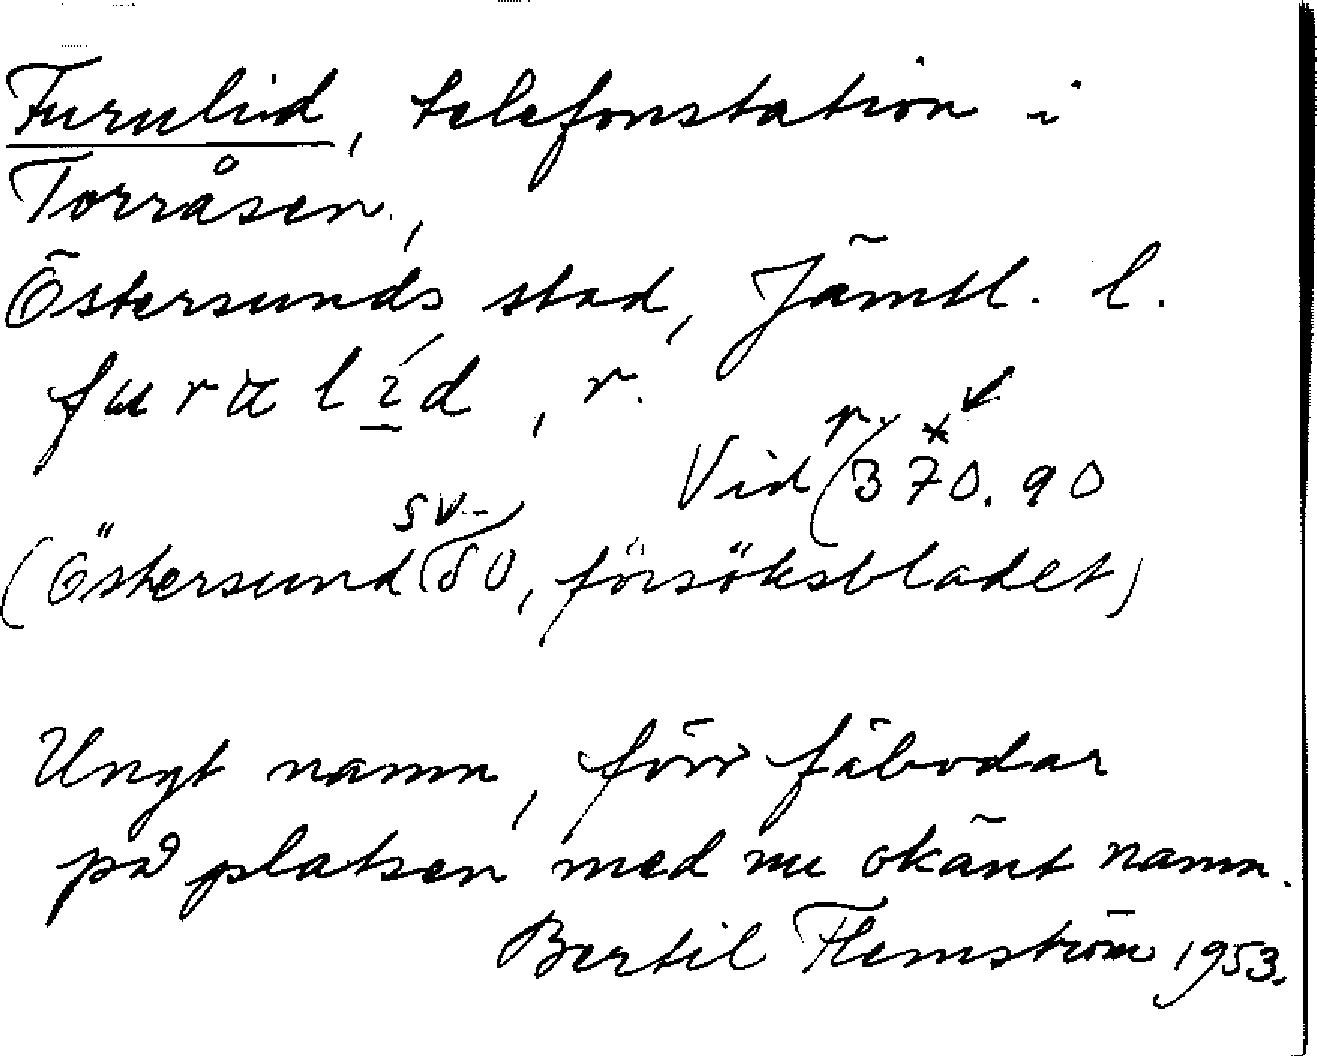 Furulid, telefonstation i
Torråsen,
Östersunds stad, Jämtl. l.
furalid, r.
Vid 370.90
sv
(Östersund 80, försöksbladet)
Ungt namn, förr fäbodar
på platsen med nu okänt namn.
Bertil Flemström 1953.